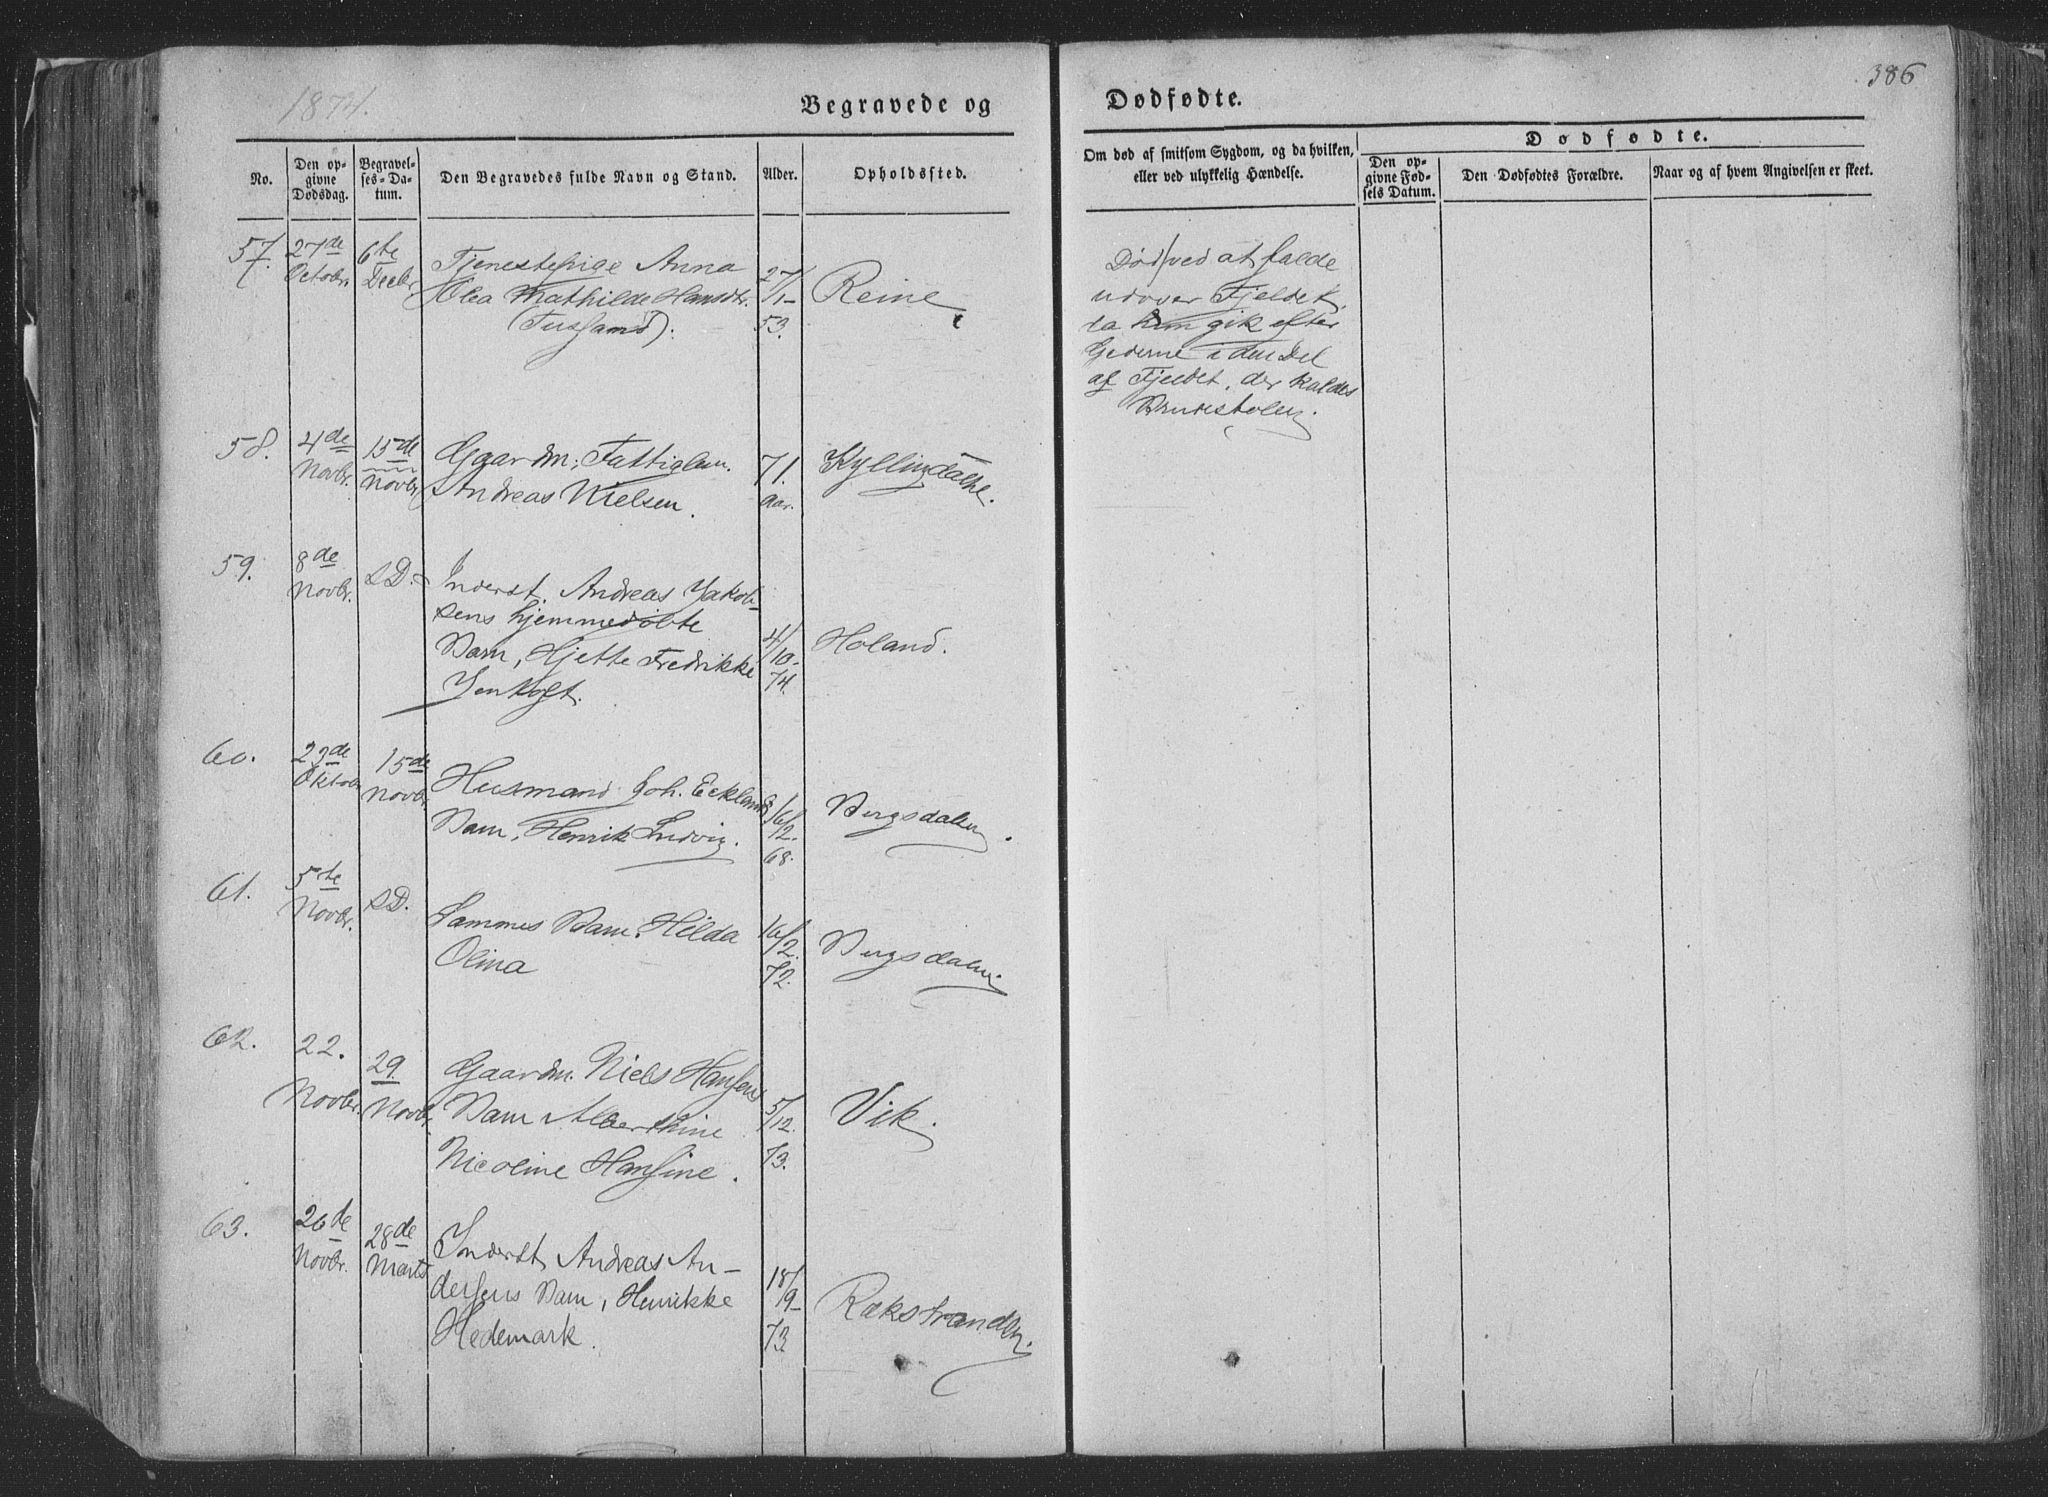 1874.
Begravede og
Dødfødte.
386
No.
Den op-
givne
Dødsdag.
Begravel-
ses-Da-
tum.
Den Begravedes fulde Navn og Stand.
Alder.
Opholdssted.
Om død af smitsom Sygdom, og da hvilken,
eller ved ulykkelig Hændelse.
Dødfødte.
Den op-
givne Fød-
sels Datum.
Den Dødfødtes Forældre.
Naar og af hvem Angivelsen er skeet.
57.
27de
Octobr.
6te
Decbr
Tjenestepige Anna
Olea Mathilde Hansdtr.
27/1-
53.
Reine
Død ved at falde
udover Fjeldet,
da hun gik efter
Gederne i den Del
af Fjeldet, der kaldes
Brudestolen.
58.
4de
Novbr.
15de
Novbr
Gaardm, Fattiglem.
Andreas Nielsen.
71.
aar.
59.
8de
Novbr.
S.D.
Inderst. Andreas Jakob-
sens hjemmedøbte
Barn, Hjette Fredrikke
4/10-
74.
Holand.
60.
23de
Oktobr
15de
Novbr.
Husmand Joh. Ecklands
Barn, Henrik Ludvig.
16/12.
68.
Bergsdalen.
61.
5te
Novbr.
S.D.
Sammes Barn. Hilda
Olina
16/2.
72.
Bergsdalen
62.
22.
Novbr.
29.
Novbr.
Gaardm. Niels Hansens
Barn Alberthine
Nicoline Hansine.
5/12.
73.
Vik.
63.
26de
Novbr.
28de
Marts
Inderst, Andreas An-
dersens Barn, Henrikke
Hedemark.
18/9-
73
Rækstranden.